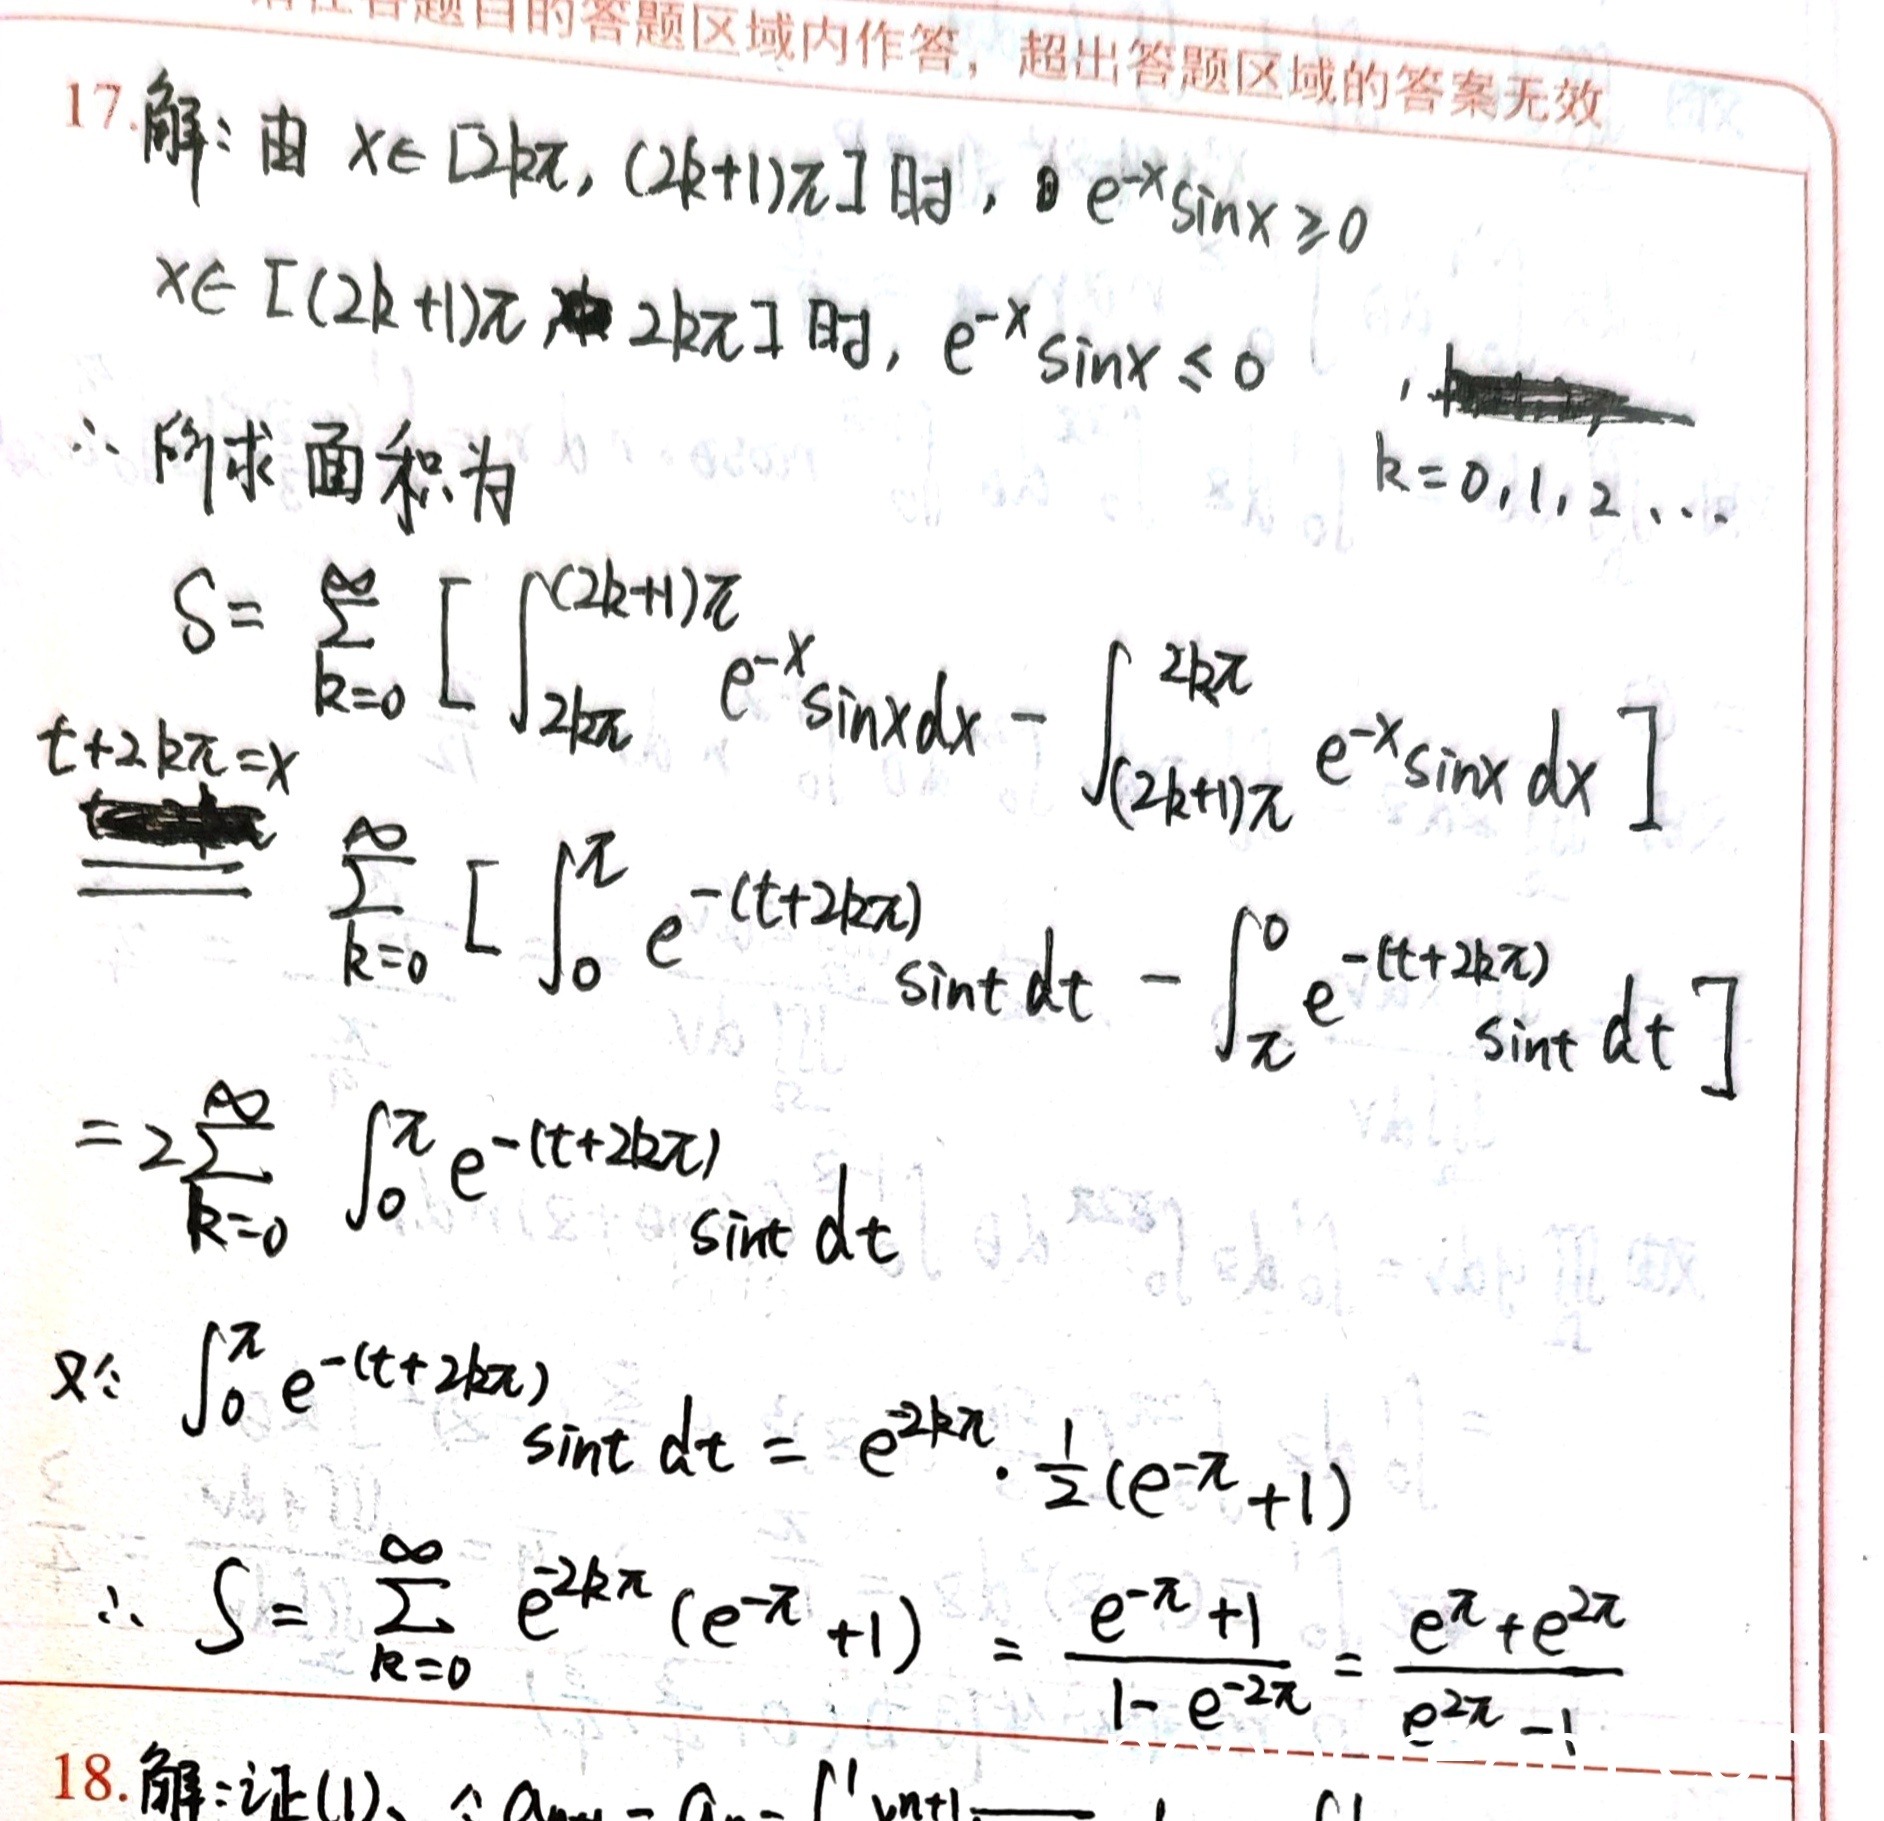 答题区域内作答，超出答题区域的答案无效
17.解：由 x∈[2kπ, (2k+1)π]时, e^{-x}sinx≥0
x∈[(2k+1)π, 2kπ]时, e^{-x}sinx≤0
k=0,1,2...
∴所求面积为
S= ∑_{k=0}^{∞} [∫_{2kπ}^{(2k+1)π} e^{-x}sinxdx - ∫_{(2k+1)π}^{2kπ} e^{-x}sinx dx]
t+2kπ=x
= ∑_{k=0}^{∞} [∫_0^π e^{-(t+2kπ)} sint dt - ∫_π^0 e^{-(t+2kπ)} sint dt]
=2∑_{k=0}^{∞} ∫_0^π e^{-(t+2kπ)} sint dt
又∵ ∫_0^π e^{-(t+2kπ)} sint dt = e^{-2kπ}·\frac{1}{2}(e^{-π}+1)
∴ S= ∑_{k=0}^{∞} e^{-2kπ}(e^{-π}+1) = \frac{e^{-π}+1}{1-e^{-2π}} = \frac{e^{π}+e^{2π}}{e^{2π}-1}
18.解：证(1)、